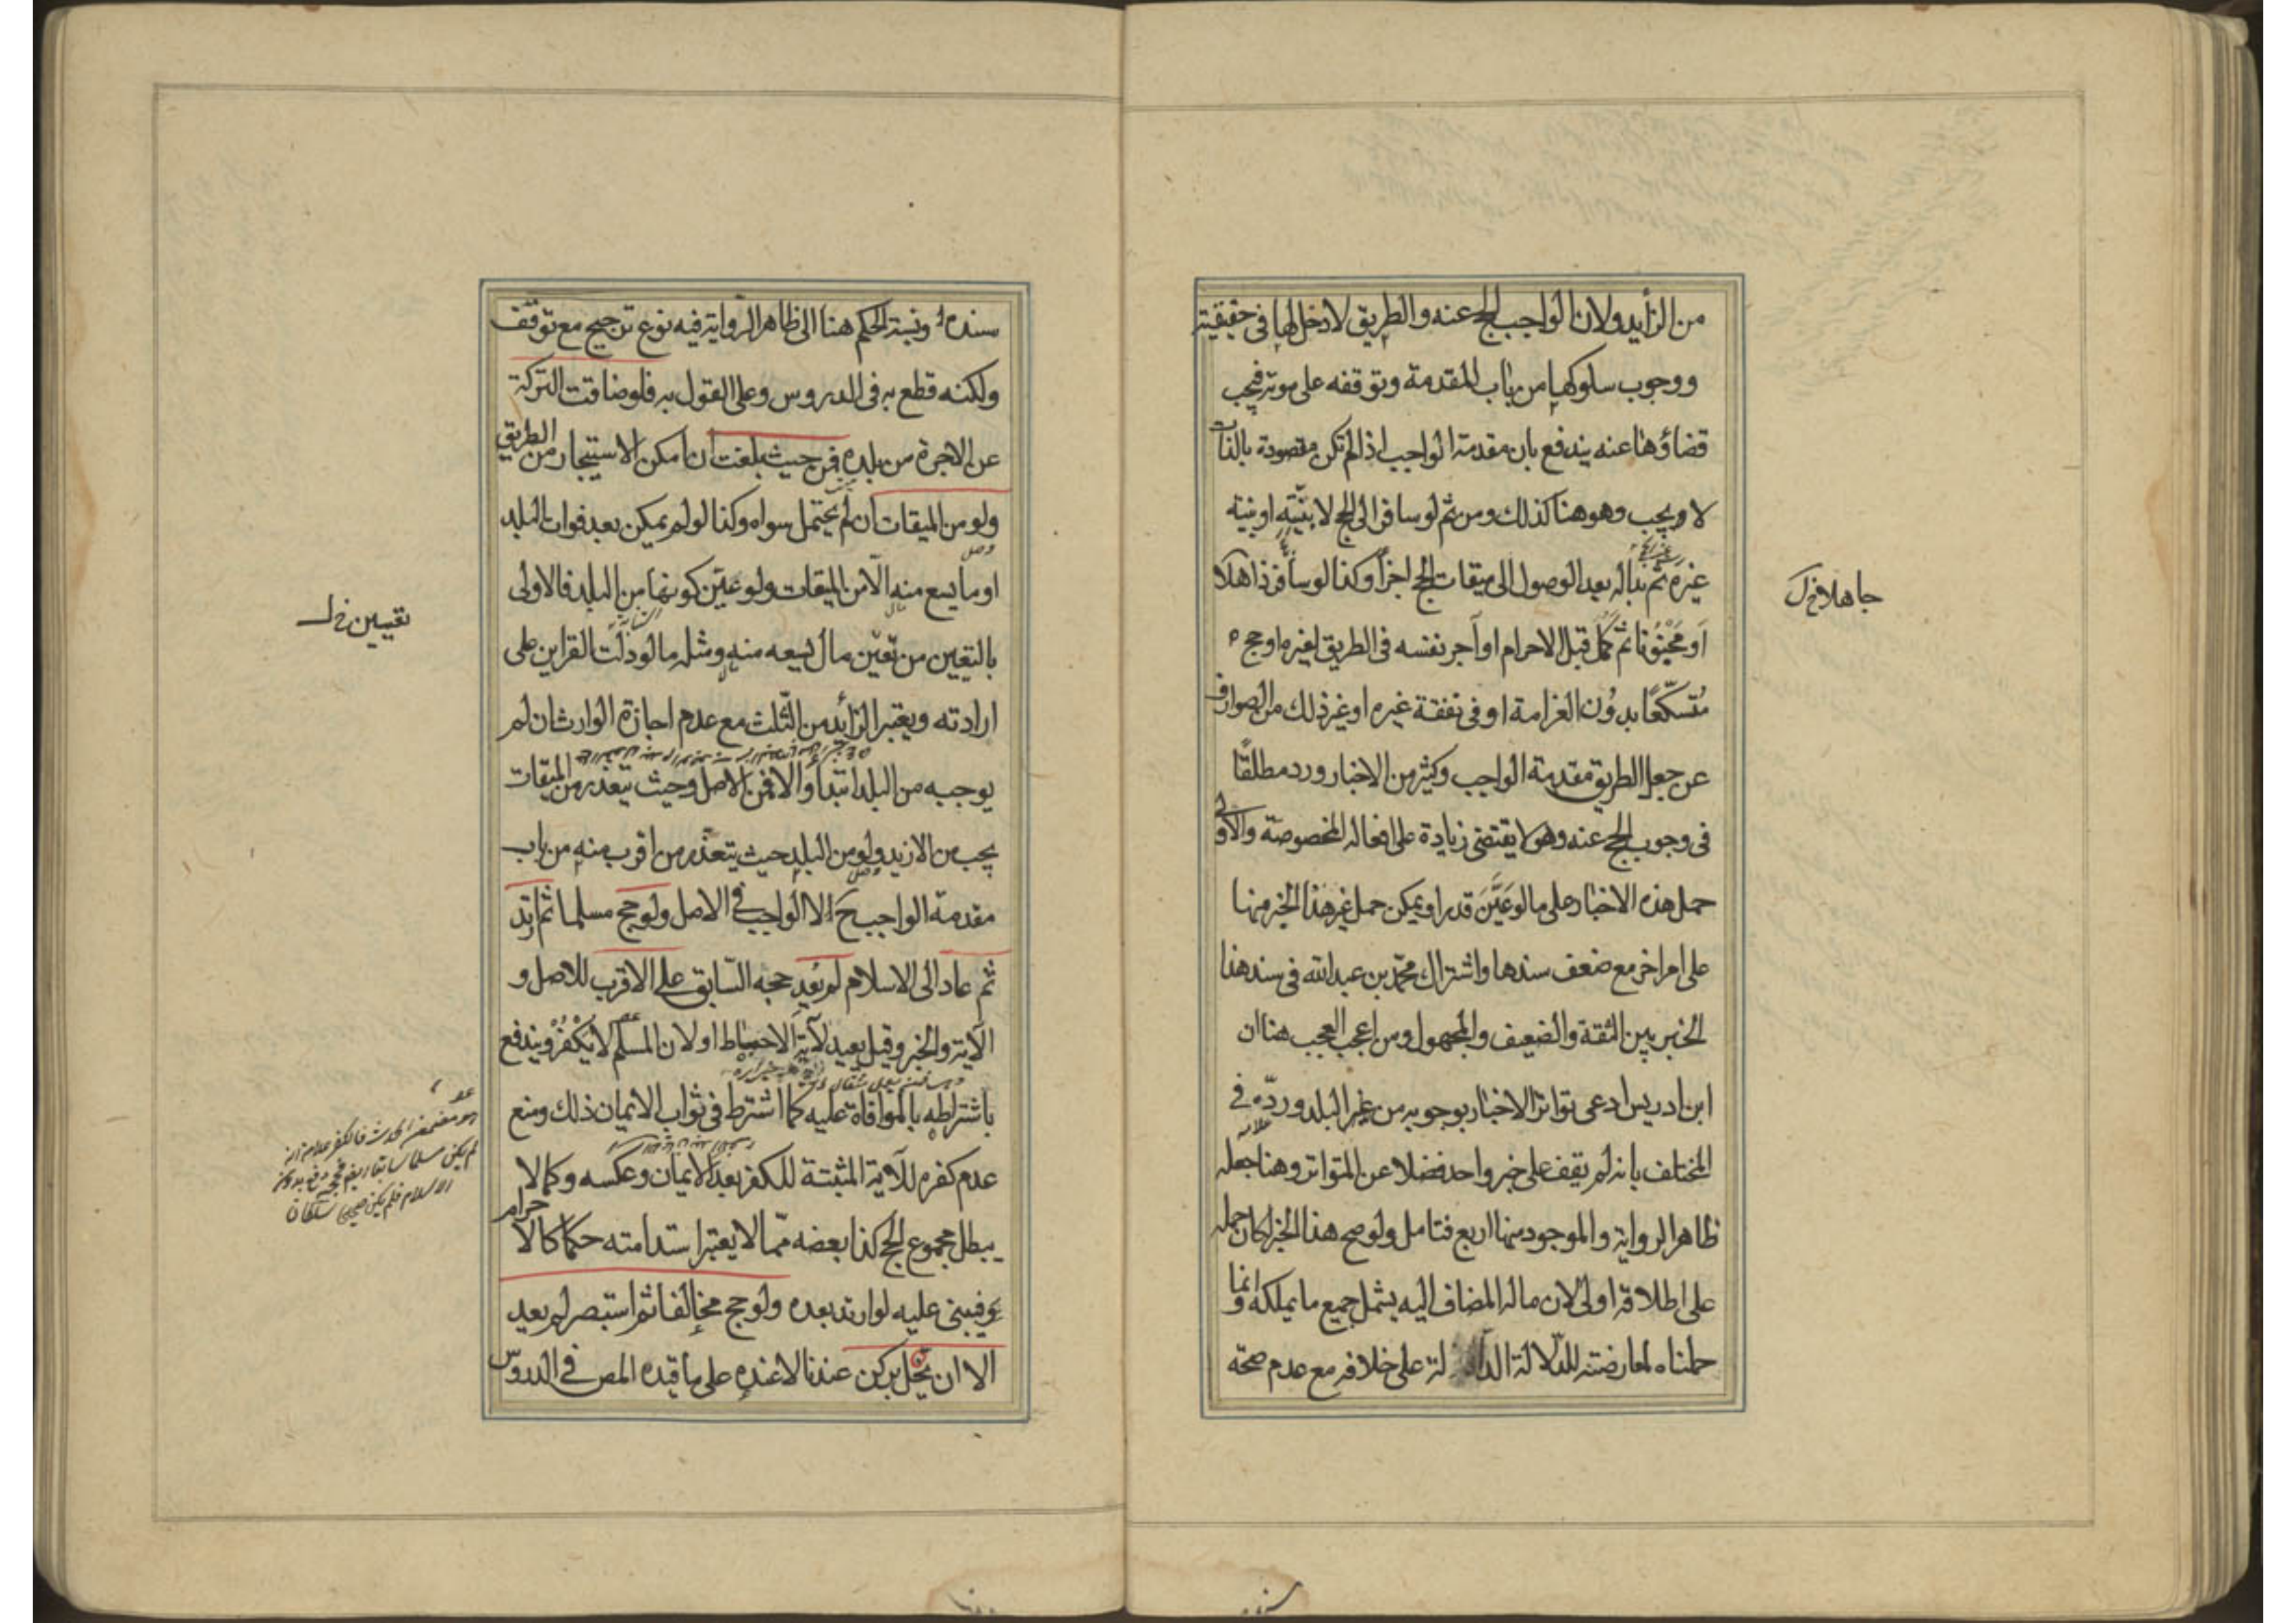 من الزايد ولان الواجب الحج عنه والطريق لا دخل لها في حقيقته
ووجوب سلوكها من باب المقدمة وتوقفه على موته فيجب
قضاؤها عنه يندفع بان مقدمة الواجب اذا لم تكن مقصودة بالذات
لا يجب وهو هنا كذلك ومن ثم لو سافر الى الحج لا بنيته او بنية
غيره ثم بدا له بعد الوصول الى ميقات الحج اجزأ وكذا لو سافر ذاهلا
او مجنونا ثم كمل قبل الاحرام او آجر نفسه في الطريق لغيره او حج
متسكعا بدون الغرامة او في نفقة غيره او غير ذلك من الصوارف
عن جعل الطريق مقدمة الواجب وكثير من الاخبار ورد مطلقا
في وجوب الحج عنه وهو لا يقتضي زيادة على افعاله المخصوصة والاولى
حمل هذه الاخبار على ما لو عين قدرا ويمكن حمل غير هذا الخبر منها
على امر اخر مع ضعف سندها واشتراك محمد بن عبد الله في سند هذا
الخبر بين الثقة والضعيف والمجهول ومن اعجب العجب هنا ان
ابن ادريس ادعى تواتر الاخبار بوجوبه من غير البلد ورده في
المختلف بانه لم يقف على خبر واحد فضلا عن المتواتر وهنا جعله
ظاهر الرواية والموجود منها اربع فتامل ولو صح هذا الخبر لكان حمله
على اطلاقه اولى لان ماله المضاف اليه يشمل جميع ما يملكه وانما
حملناه لمعارضته للدلالة الدالة على خلافه مع عدم صحة
جاهلا خ ل
سنده ونسبة الحكم هنا الى ظاهر الرواية فيه نوع ترجيح مع توقف
ولكنه قطع به في الدروس وعلى القول به فلو ضاقت التركة
عن الاجرة من بلده فمن حيث بلغت ان امكن الاستيجار من الطريق
ولو من الميقات ان لم يحتمل سواه وكذا لو لم يمكن بعد فوات البلد
او ما يسع منه الا من الميقات ولو عين كونها من البلد فالاولى
بالتعيين من تعين مال يسعه منه ومثله ما لو دلت القراين على
ارادته ويعتبر الزائد من الثلث مع عدم اجازة الوارث ان لم
يوجبه من البلد ابتداء والا فمن الاصل وحيث يتعذر من الميقات
يجب من الازيد ولو من البلد حيث يتعذر من اقرب منه من باب
مقدمة الواجب ح لا الواجب في الاصل ولو حج مسلما ثم ارتد
ثم عاد الى الاسلام لم يعد حجه السابق على الاقرب للاصل و
الآية والخبر وقيل يعيد لآية الاحباط او لان المسلم لا يكفر ويندفع
باشتراطه بالموافاة عليه كما اشترط في ثواب الايمان ذلك ومنع
عدم كفره للآية المثبتة للكفر بعد الايمان وعكسه وكما لا
يبطل مجموع الحج كذا بعضه مما لا يعتبر استدامته حكما كالاحرام
فيبني عليه لو ارتد بعده ولو حج مخالفا ثم استبصر لم يعد
الا ان يخل بركن عندنا لا عنده على ما قيده المص في الدروس
تعيين خ ل